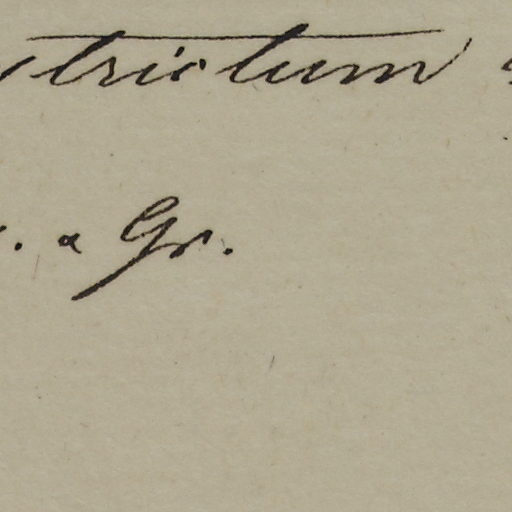 strictum
. & Gr.